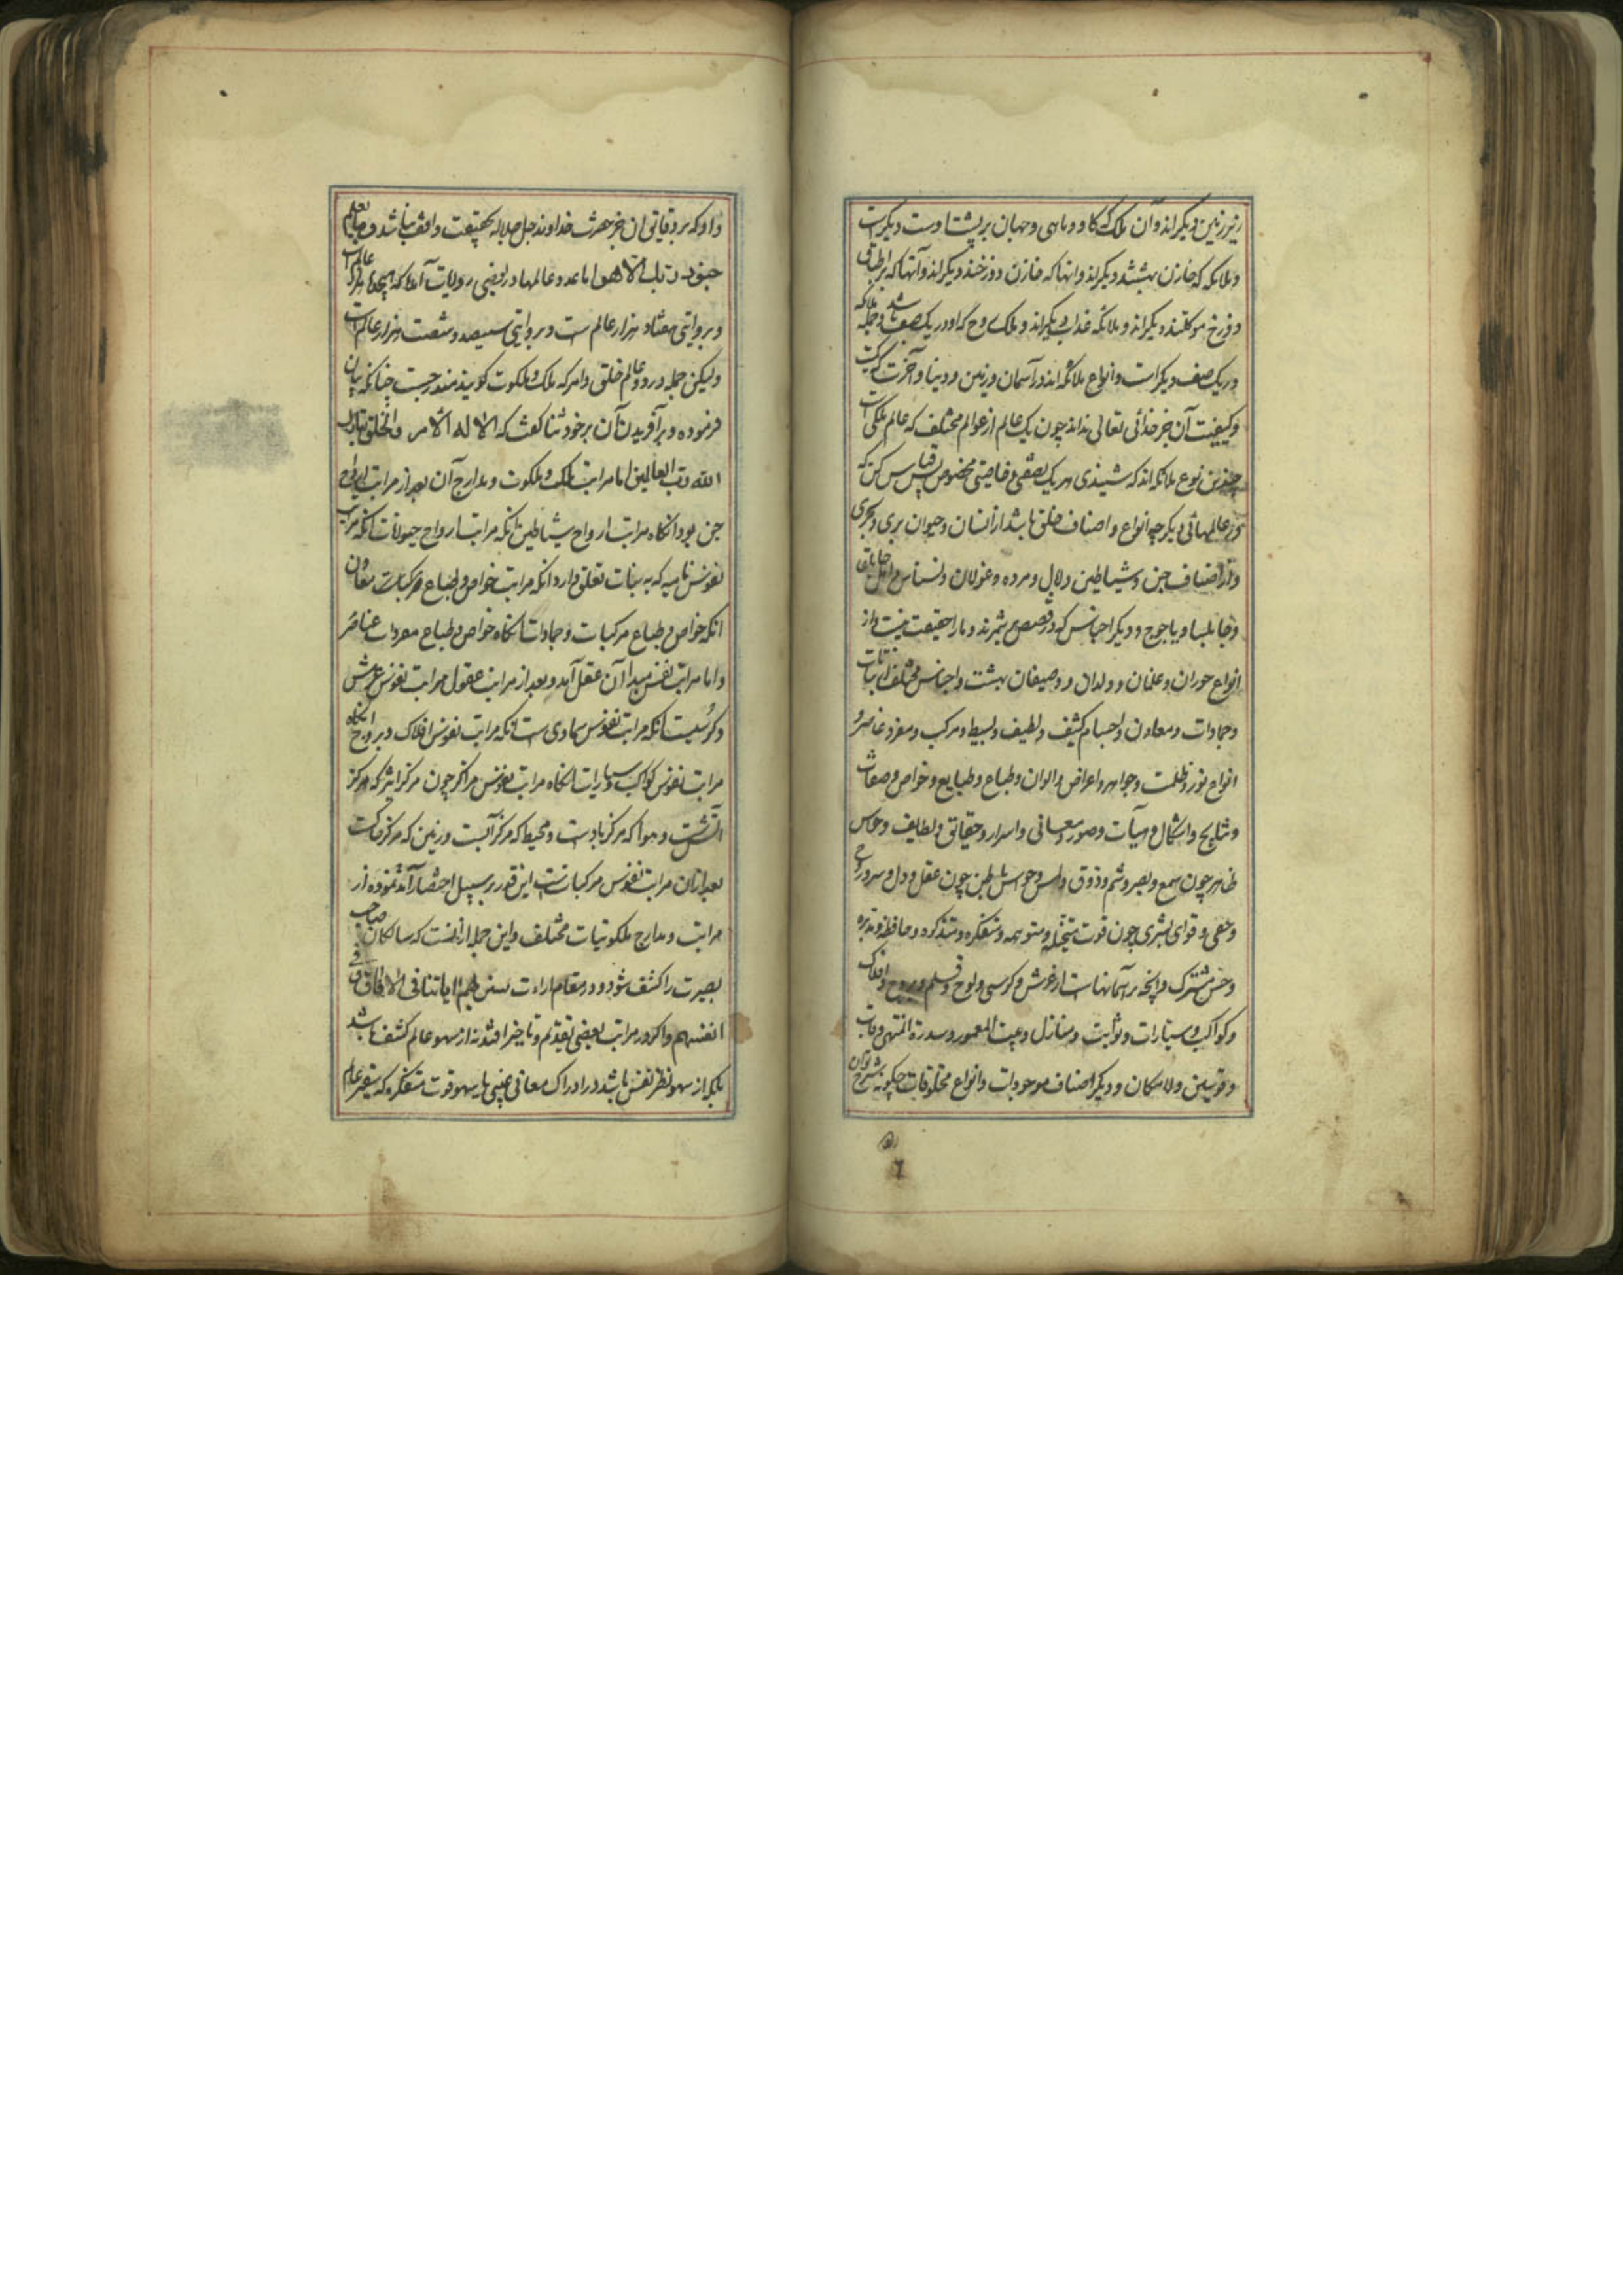 زیر زمین دیکراند وآن ملک که کاو و ماهی و جهان بر پشت اوست دیکرست
و ملائکه که خازن بهشتند دیکراند و انها که خازن دوزخند دیکراند وآنها که بر اطباق
دوزخ موکلند دیکراند و ملائکه عذاب دیکراند و ملک روح که او در یک صف باشد و جمله ملائکه
در یک صف دیکر است و انواع ملائکه اند در آسمان و زمین و دنیا و آخرت که کمیت
و کیفیت آن جز خدای تعالی نداند چون یک عالم از عوالم مختلف که عالم ملکی است
چندین نوع ملائکه اند که شنیدی هر یک بصفتی و خاصیتی مخصوص قیاس کن که
در عالمهائی دیکر چه انواع و اصناف خلق باشد از انسان و حیوان بری و بحری
و از اصناف جن و شیاطین و مرده و غولان و نسناس و اهل جابلقا
و جابلسا و یاجوج و دیکر اجناس که در قصص شمرند و ما را حقیقت نیست و از
انواع حوران و غلمان و ولدان و وصیفان بهشت و اجناس مختلف از نباتات
و جمادات و معادن و اجسام کثیف و لطیف و بسیط و مرکب و مفرد عناصر و
انواع نور و ظلمت و جواهر و اعراض و الوان و طباع و طبایع و خواص و صفات
و نتایج و اشکال و هیآت و صور و معانی و اسرار و حقایق و لطایف و حواس
ظاهر چون سمع و بصر و شم و ذوق و لمس و حواس باطن چون عقل و دل و سر و روح
و خفی و قوای بشری چون قوت متخیله و متوهمه و متفکره و متذکره و حافظه و مدبره
و حس مشترک و آنچه بر آسمانهاست از عرش و کرسی و لوح و قلم و بروج و افلاک
و کواکب و سیارات و ثوابت و منازل و بیت المعمور و سدرة المنتهی و قاب
و قوسین و لامکان و دیکر اصناف موجودات و انواع مخلوقات چکونه شرح توان
داد که بر دقایق ان جز حضرت خداوند جل جلاله بحقیقت واقف نباشد و ما یعلم
جنود ربک الا هو اما عدد عالمها در بعضی روایات آمده که هیجده هزار عالم است
و بروایتی هفتاد هزار عالم است و بروایتی سیصد و شصت هزار عالم است
ولیکن جمله در دو عالم خلق و امر که ملک و ملکوت کویند مندرجست چنانکه بیان
فرموده و بر آفریدن آن بر خود ثنا کفت که الا له الخلق و الامر تبارک
الله رب العالمین اما مراتب ملک و ملکوت و مدارج آن بعد از مراتب ارواح
جن بود انکاه مراتب ارواح شیاطین انکه مراتب ارواح حیوانات انکه مراتب
نفوس نامیه که به نبات تعلق دارد انکه مراتب خواص و طباع مرکبات معادن
انکه خواص و طباع مرکبات و جمادات انکاه خواص و طباع مفردات عناصر
و اما مراتب نفس مبدا آن عقل آمد و بعد از مراتب عقول مراتب نفوس عرش
و کرسیست انکه مراتب نفوس سماوی است انکه مراتب نفوس افلاک و بروج انکاه
مراتب نفوس کواکب و سیارات انکاه مراتب نفوس مراکز چون مرکز اثیر که مرکز
آتشست و هوا که مرکز بادست و محیط که مرکز آبست و زمین که مرکز خاکست
بعد ازان مراتب نفوس مرکبات است این قدر بر سبیل اختصار نموده آمد از
مراتب و مدارج ملکوتیات مختلف و این جمله از انست که سالکان صاحب
بصیرت را کشف شود و در مقام ارادت سنریهم ایاتنا فی الافاق و فی
انفسهم و اکر در مراتب بعضی تقدیم و تاخیر افتد نه از سهو عالم کشف باشد
بلکه از سهو نظر نفس باشد در ادراک معانی غیبی یا سهو قوت متفکره که